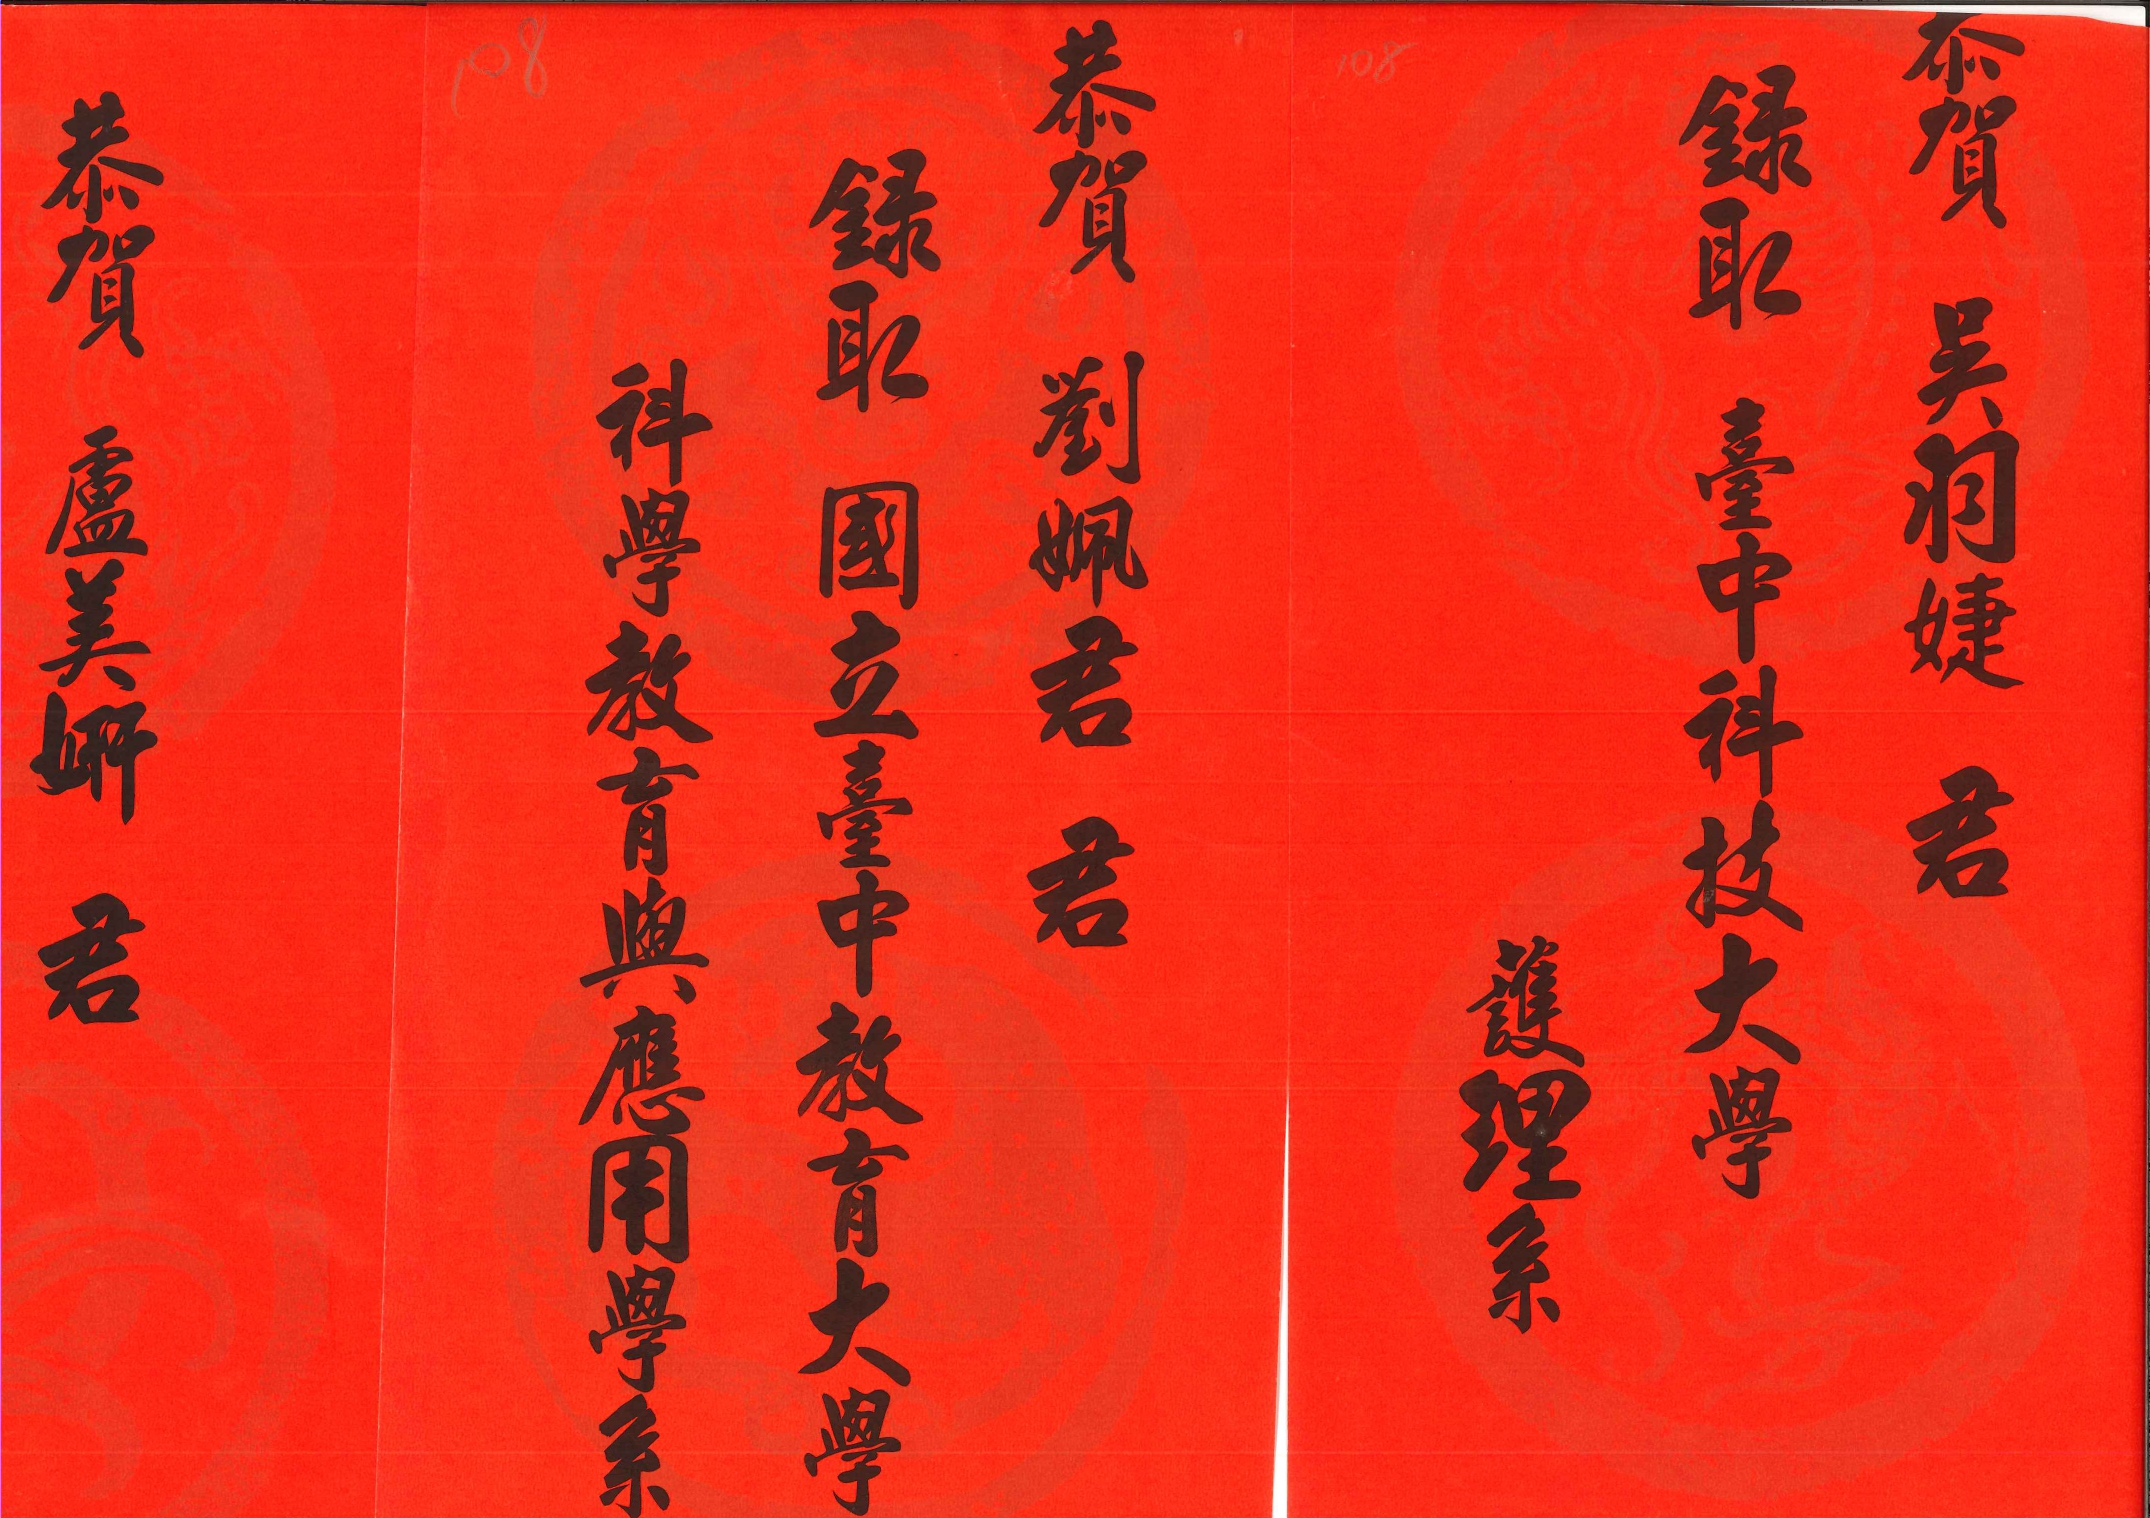 恭賀 吳羽婕 君
錄取 臺中科技大學
護理系
108
恭賀 劉姵君 君
錄取 國立臺中教育大學
科學教育與應用學系
108
恭賀 盧美妍 君